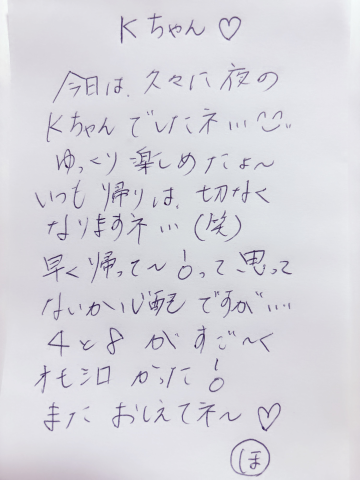 Kちゃん♡
今日は、久々に夜の
Kちゃんでしたネ…
ゆっくり楽しめたよ〜
いつも帰りは、切なく
なりますネ…(笑)
早く帰って〜!って思って
ないか心配ですが…
4と8がすご〜く
オモシロかった!
またおしえてネ〜♡
ほ